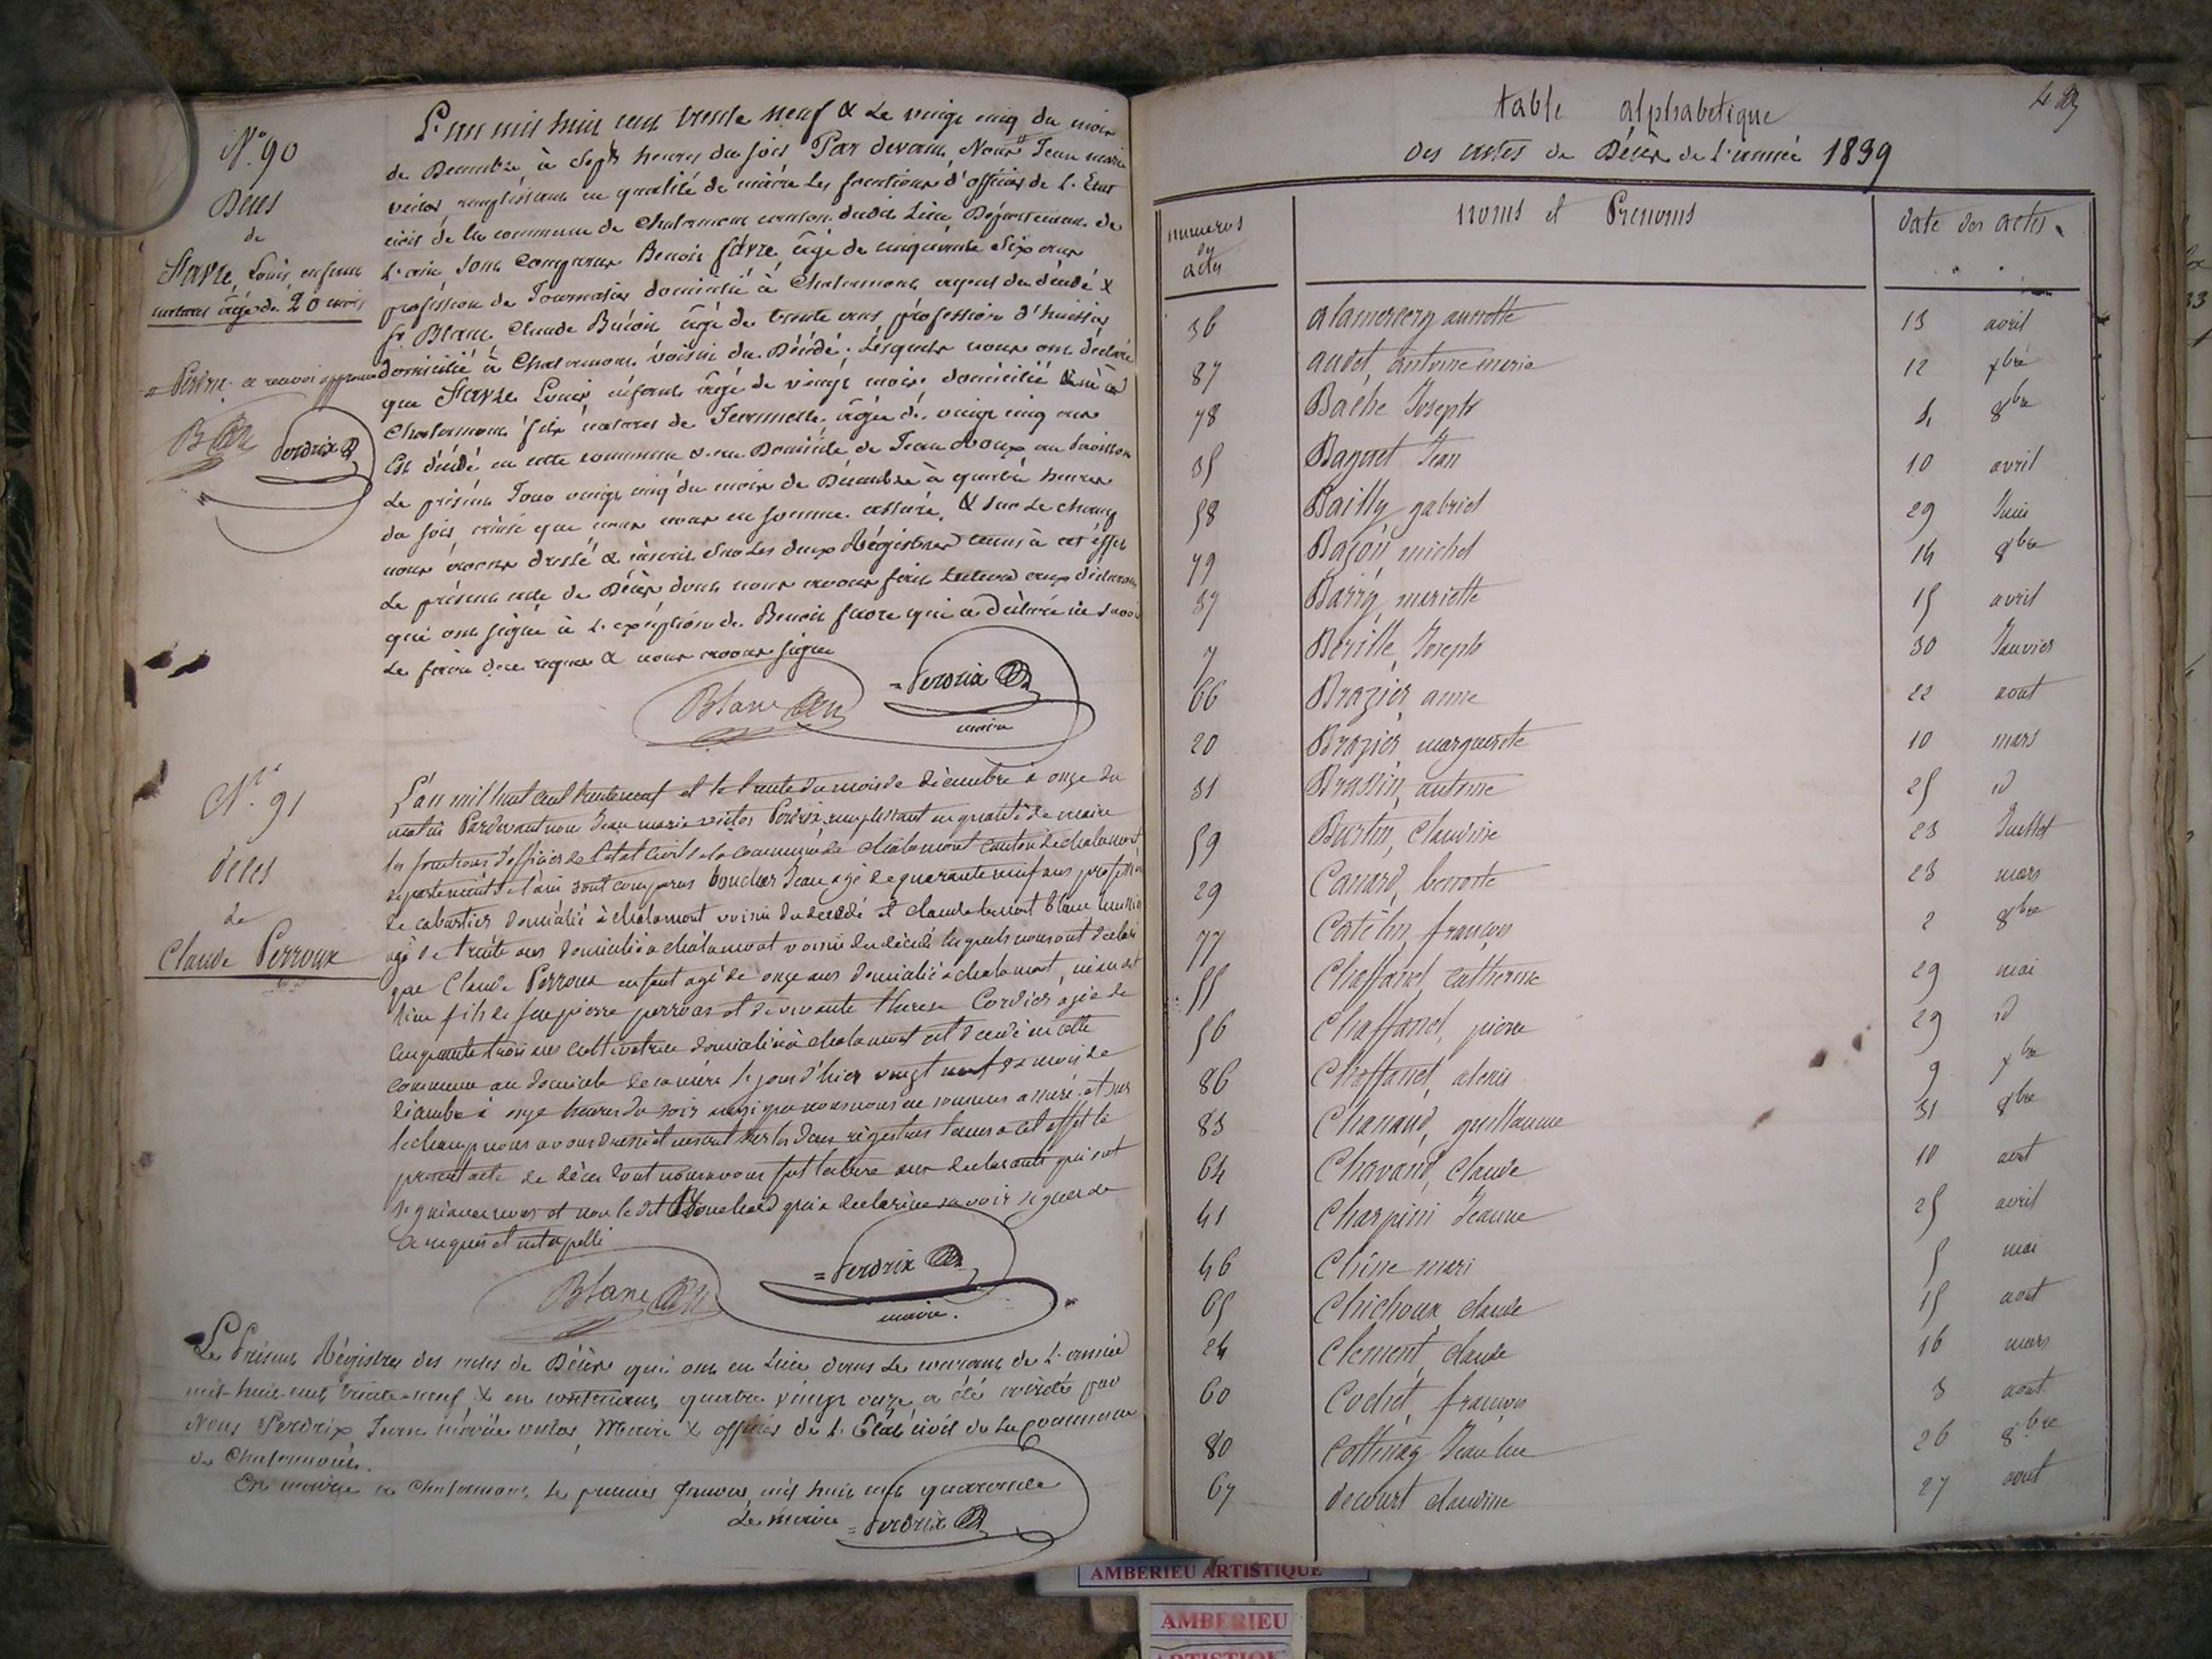 N.° 90
Déces
de
Favre, Louis, enfant
naturel âgé de 20 mois
= Perdrix. ce renvoi approuvé
Perdrix
L'an mil huit cent trente neuf & Le vingt cinq du mois
de Décembre, à sept heures du soir Par devant, Nous Jean marie
victor remplissant en qualité de maire Les fonctions d'officier de L'Etat
civil de la commune de Chalamont canton dudit Lieu Département de
L'ain Sont Comparus Benoit favre âgé de cinquante six ans
profession de Journalier domicilié à Chalamont ayeul du décédé &
sr Blanc, Claude Benoit âgé de trente ans profession d'huissier
domicilié à Chalamont voisin du Décédé. Lesquels nous ont déclaré
que Favre Louis enfant âgé de vingt mois domicilié & né à
Chalamont fils naturel de Jeannette, âgée de vingt cinq ans
Est décédé en cette commune & au Domicile de Jean
Le présent Jour vingt cinq du mois de Décembre à quatre heures
du soir ainsi que nous nous en sommes assuré, & sur Le champ
nous avons dressé & inscrit sur Les deux Régistres tenus à cet effet
Le présent acte de Décès dont nous avons fait Lecture aux déclarans
qui ont signé à L'exception de Benoit favre qui a déclaré ne Savoir
Le faire de ce requis & nous avons signé
Blanc
= Perdrix
maire
N.° 91
déces
de
Claude Perroux
L'an mil huit cent trente neuf et le trente du mois de décembre à onze du
matin Pardevant nous Jean marie victor Perdrix remplissant en qualité de maire
les fonctions d'officier de l'etat civil de la commune de chalamont canton de chalamont
departement de l'ain sont comparus bouchar Jean agé de quarante neuf ans profession
de cabartier domicilié à chalamont voisin du decedé et claude benoit blanc huissier
agé de trente ans domicilié à chalamont voisin du décédé lesquels nous ont declaré
que Claude Perroux enfant agé de onze ans domicilié à chalamont, né au dit
lieu fils de feu pierre perroux et de vivante therese Cordier agée de
cinquante trois ans cultivatrice domiciliée à chalamont est décédé en cette
commune au domicile de sa mére le jour d'hier vingt neuf du mois de
décembre à onze heures du soir ainsi que nous nous en sommes assuré. et sur
le champ nous avons dressé et inscrit sur les deux régistres tenus à cet effet le
present acte de décès dont nous avons fait lecture aux declarants qui ont
signé avec nous et non le dit Bouchard qui a declaré ne savoir signer de
ce requis et interpellé
Blanc
= Perdrix
maire.
Le Présent Régistre des actes de Décès qui ont eu Lieu dans Le courant de L'année
mil-huit-cent trente-neuf, & en contenant quatre vingt onze a été arrêté par
Nous Perdrix Jean marie victor, Maire & officier de L'Etat civil de La Commune
de Chalamont.
En mairie à Chalamont Le premier Janvier mil huit cent quarante
Le maire = Perdrix
table alphabétique
des actes de Décès de L'année 1839
numeros des actes | noms et Prenoms | date des actes.
36 alamercery annette 13 avril
87 audet, antoine marie 12 xbre
78 Bache Joseph 4 8bre
35 Baguet Jean 10 avril
58 Bailly gabriel 29 Juin
79 Bajon michel 14 8bre
37 Barry, mariette 15 avril
7 Berille, Joseph 30 Janvier
66 Brazier, anne 22 aout
20 Brazier, marguerite 10 mars
31 Brassin, antoine 25 id
59 Burtin, Claudine 23 Juillet
29 Canard, benoite 23 mars
77 Catelin, françois 2 8bre
55 Chaffanel, catherine 29 mai
56 Chaffanel, pierre 29 id
86 Chaffanel, alexis 9 xbre
83 Chanaud, guillaume 31 8bre
64 Chavand, Claude 10 aout
41 Charpini Jeanne 25 avril
46 Chêne mari 5 mai
65 Chichoux, claude 15 aout
24 Clement, claude 16 mars
60 Cochet, françois 3 aout.
80 26 8bre
67 decourt claudine 27 aout
AMBERIEU ARTISTIQUE
AMBERIEU